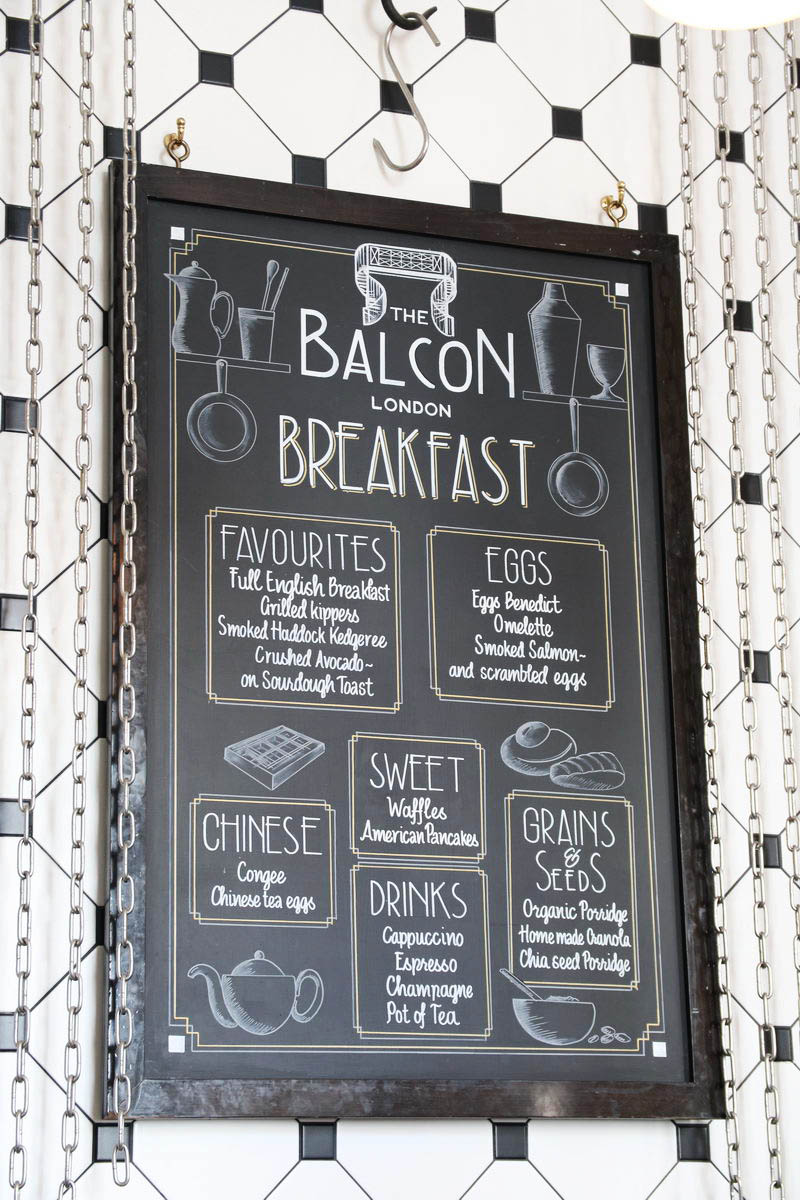 THE
BALCON
LONDON
BREAKFAST
FAVOURITES
Full English Breakfast
Grilled kippers
Smoked Haddock Kedgeree
Crushed Avocado~
on Sourdough Toast
EGGS
Eggs Benedict
Omelette
Smoked Salmon~
and scrambled eggs
SWEET
Waffles
American Pancakes
CHINESE
Congee
Chinese tea eggs
GRAINS
&
SEEDS
Organic Porridge
Home made Granola
Chia seed Porridge
DRINKS
Cappuccino
Espresso
Champagne
Pot of Tea